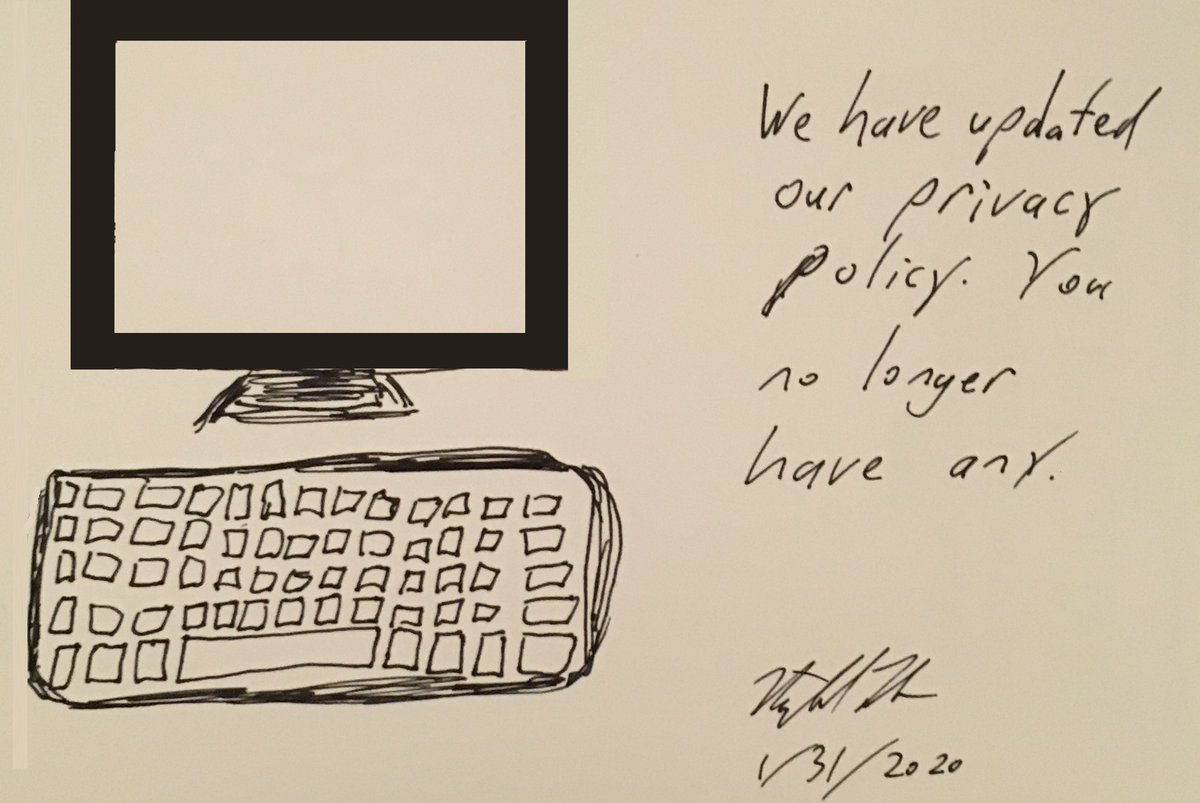 We have updated
our privacy
policy. You
no longer
have any.
1/31/2020